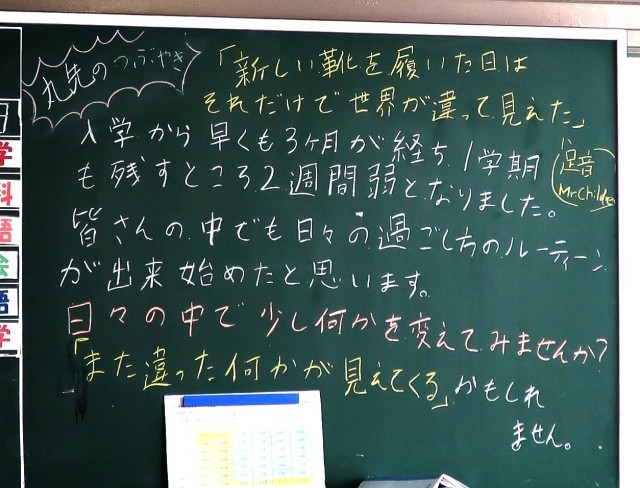 丸先のつぶやき
「新しい靴を履いた日は
それだけで世界が違って見えた」
足音
Mr.Children
入学から早くも3ヶ月が経ち、1学期
も残すところ2週間弱となりました。
皆さんの中でも日々の過ごし方のルーティーン
が出来始めたと思います。
日々の中で少し何かを変えてみませんか?
「また違った何かが見えてくる」かもしれ
ません。
学
科
語
会
語
学